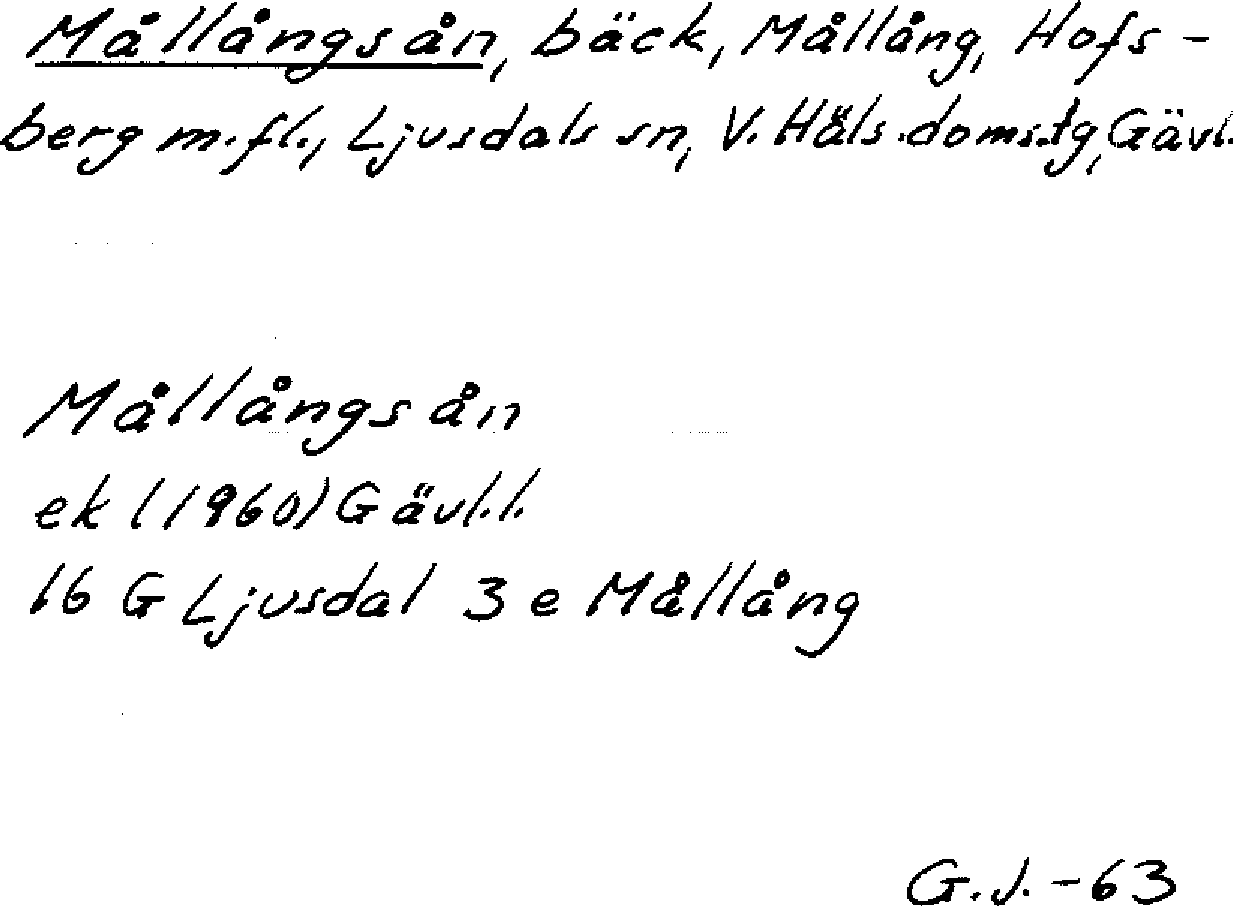 Mållångsån, bäck, Mållång, Hofs-
berg m.fl., Ljusdals sn, V. Häls. doms.tg, Gävl.
Mållångsån
ek (1960) Gävl.l.
16 G Ljusdal 3 e Mållång
G.J. -63